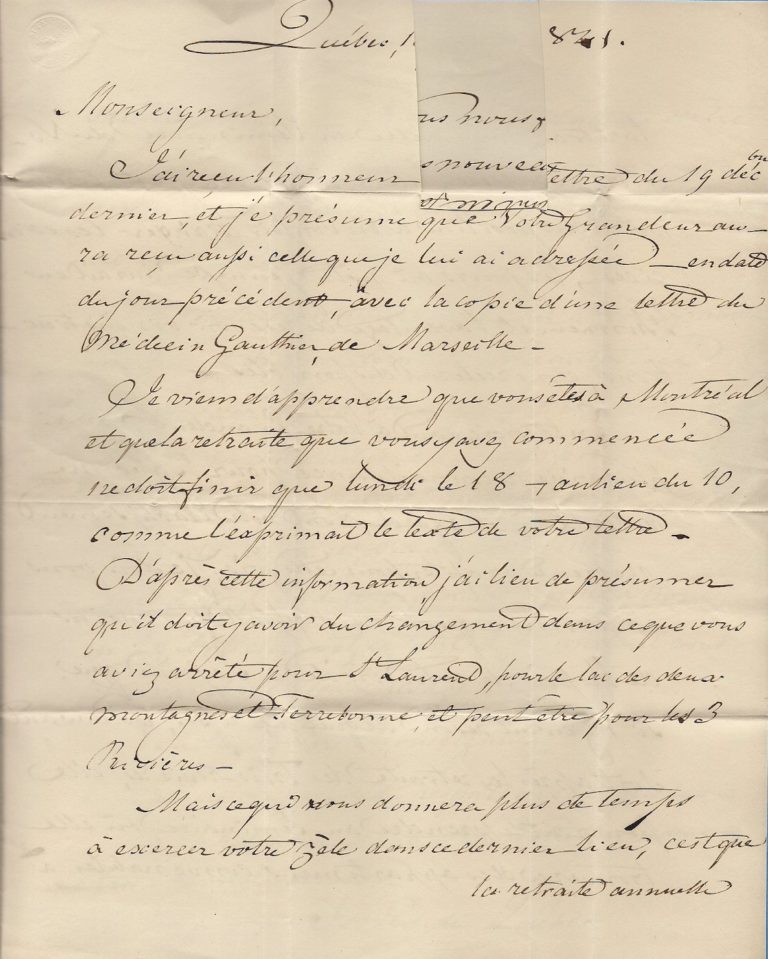 Québec, 1 841.
Monseigneur, us nous
J'ai reçu l'honneur nouvea ettre du 19 déc.bre
dernier, et je présume que Votre Grandeur au-
ra reçu aussi celle que je lui ai adressée en date
du jour précédent, avec la copie d'une lettre du
Médecin Gauthier, de Marseille -
Je viens d'apprendre que vous êtes à Montréal
et que la retraite que vous y avez commencée
ne doit finir que lundi le 18 - au lieu du 10,
comme l'exprimait le texte de votre lettre -
D'après cette information, j'ai lieu de présumer
qu'il doit y avoir du changement dans ce que vous
aviez arrêté pour St Laurent, pour le lac des deux
montagnes et Terrebonne, et peut être pour les 3
Rivières -
Mais ce qui vous donnera plus de temps
à exercer votre zèle dans ce dernier lieu, c'est que
la retraite annuelle